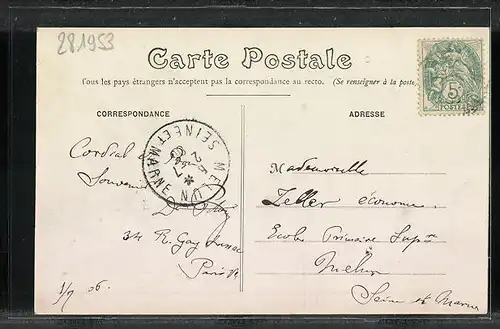 281953
Carte Postale
Tous les pays étrangers n'acceptent pas la correspondance au recto. (Se renseigner à la poste
CORRESPONDANCE
ADRESSE
5
POSTES
MELUN
SEINE ET MARNE
Cordial
Souvenir
34 R. Gay Lussac
Paris Ve
1/7 06.
Mademoiselle
Zeller économe
Ecole Primaire Supre
Melun
Seine et Marne